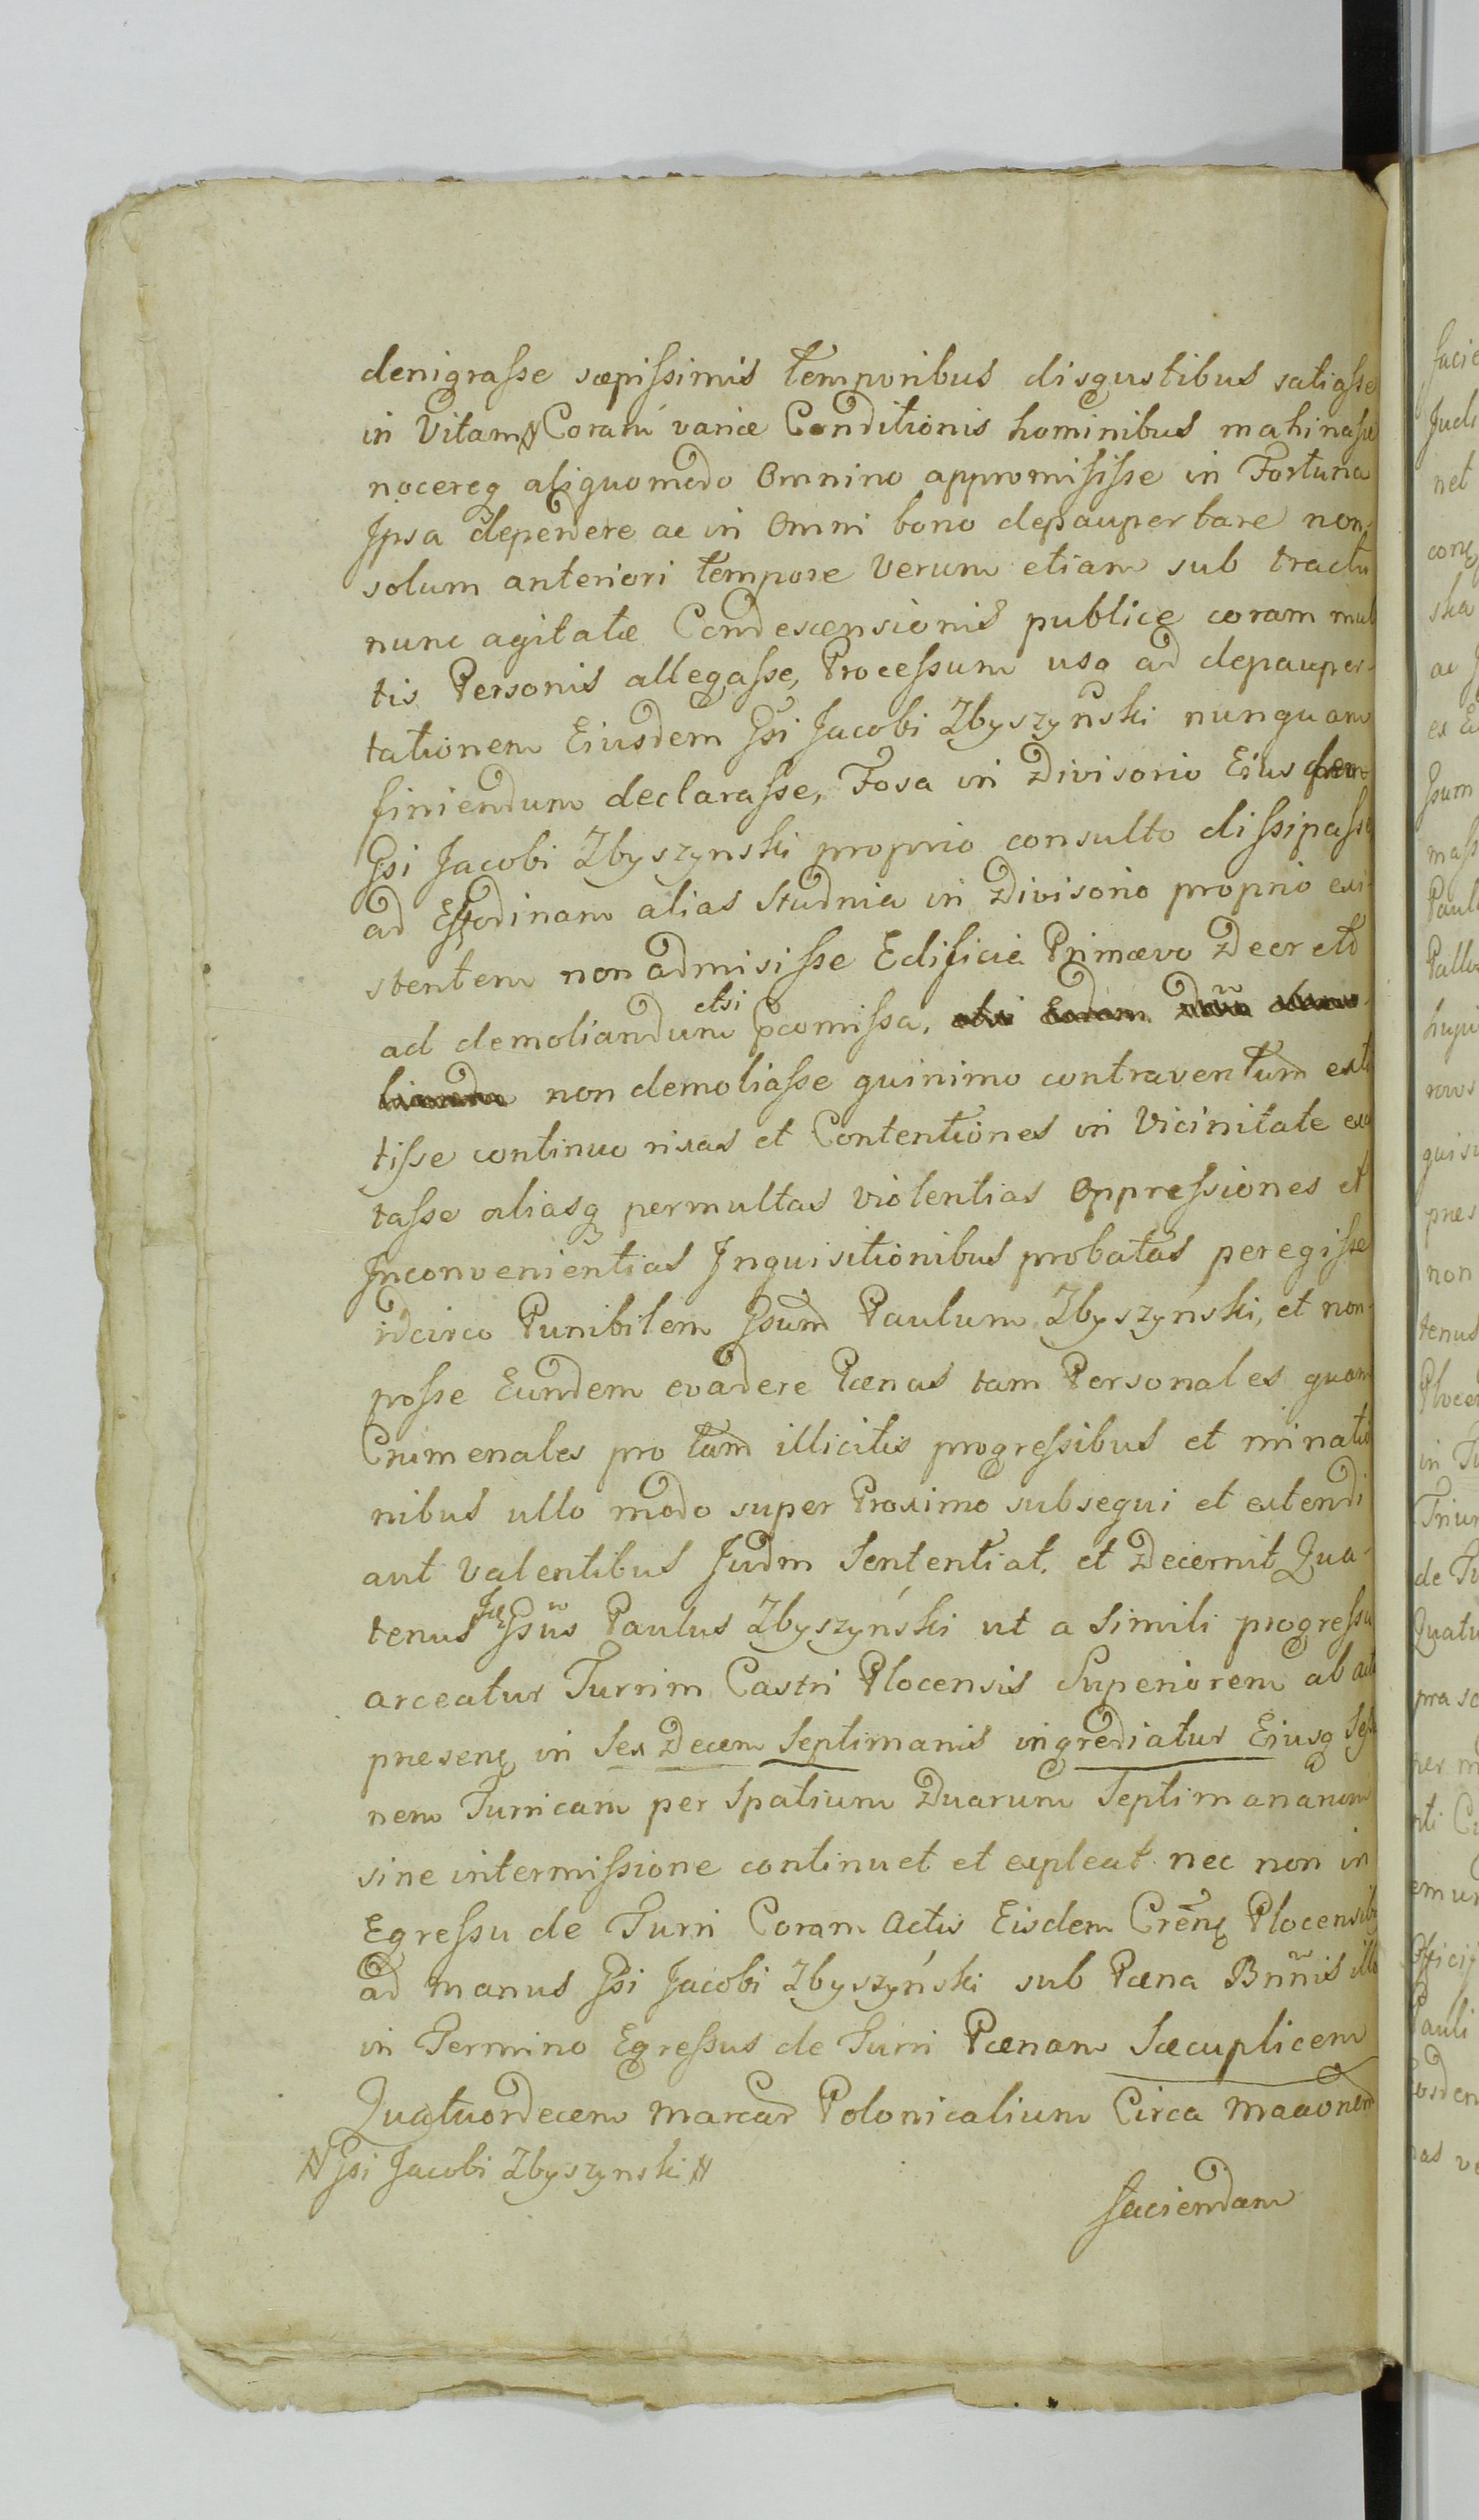 denigrasse sæpissimis temporibus disgustibus satiasse
in Vitam Coram variæ Conditionis hominibus mahinasse
nocereq aliquomodo Omnino appromisisse in Fortuna
Ipsa dependere ac in Omni bono depauperbare non
solum anteriori tempore Verum etiam sub tractu
nunc agitatæ Condescensionis publice coram mul
tis Personis allegasse, Processum usq ad depauper-
tationem Eiusdem Gsi Jacobi Zbyszyński nunquam
finiendum declarasse, Fosa in Divisorio Eiusdem
Gsi Jacobi Zbyszynski proprio consulto dissipasse
ad Effodinam alias Studnia in Divisorio proprio exi
stentem non admisisse Edificia Primævo Decreto
ad demoliandum etsi pcomissa,
non demoliasse quinimo contraventum exti
tisse continuo rixas et Contentiones in Vicinitate exci
tasse aliasq permultas violentias Oppressiones et
Inconvenientias Inquisitionibus probatas peregisse
idcirco Punibilem Gsum Paulum Zbyszyński, et non
posse Eundem evadere Pœnas tam Personales quam
Crimenales pro tam illicitis progressibus et minatio
nibus ullo modo super Proximo subsequi et extendi
aut Valentibus Judm Sententiat. et Decernit Qua-
tenus Gsus Paulus Zbyszyński ut a Simili progressu
arceatur Turrim Castri Plocensis Superiorem ab actu
presenę in Sex Decem Septimanis ingrediatur Eiusq Sess
nem Turricam per Spatium Duarum Septimanarum
sine intermissione continuet et expleat nec non in
Egressu de Turri Coram Actis Eisdem Crenę Plocensib
ad manus Gsi Jacobi Zbyszyński sub Pæna Bnnis illo
in Termino Egressus de Turri Pœnam Sæcuplicem
Quatuordecem marcar Polonicalium Circa
Gsi Jacobi Zbyszynski
faciendam